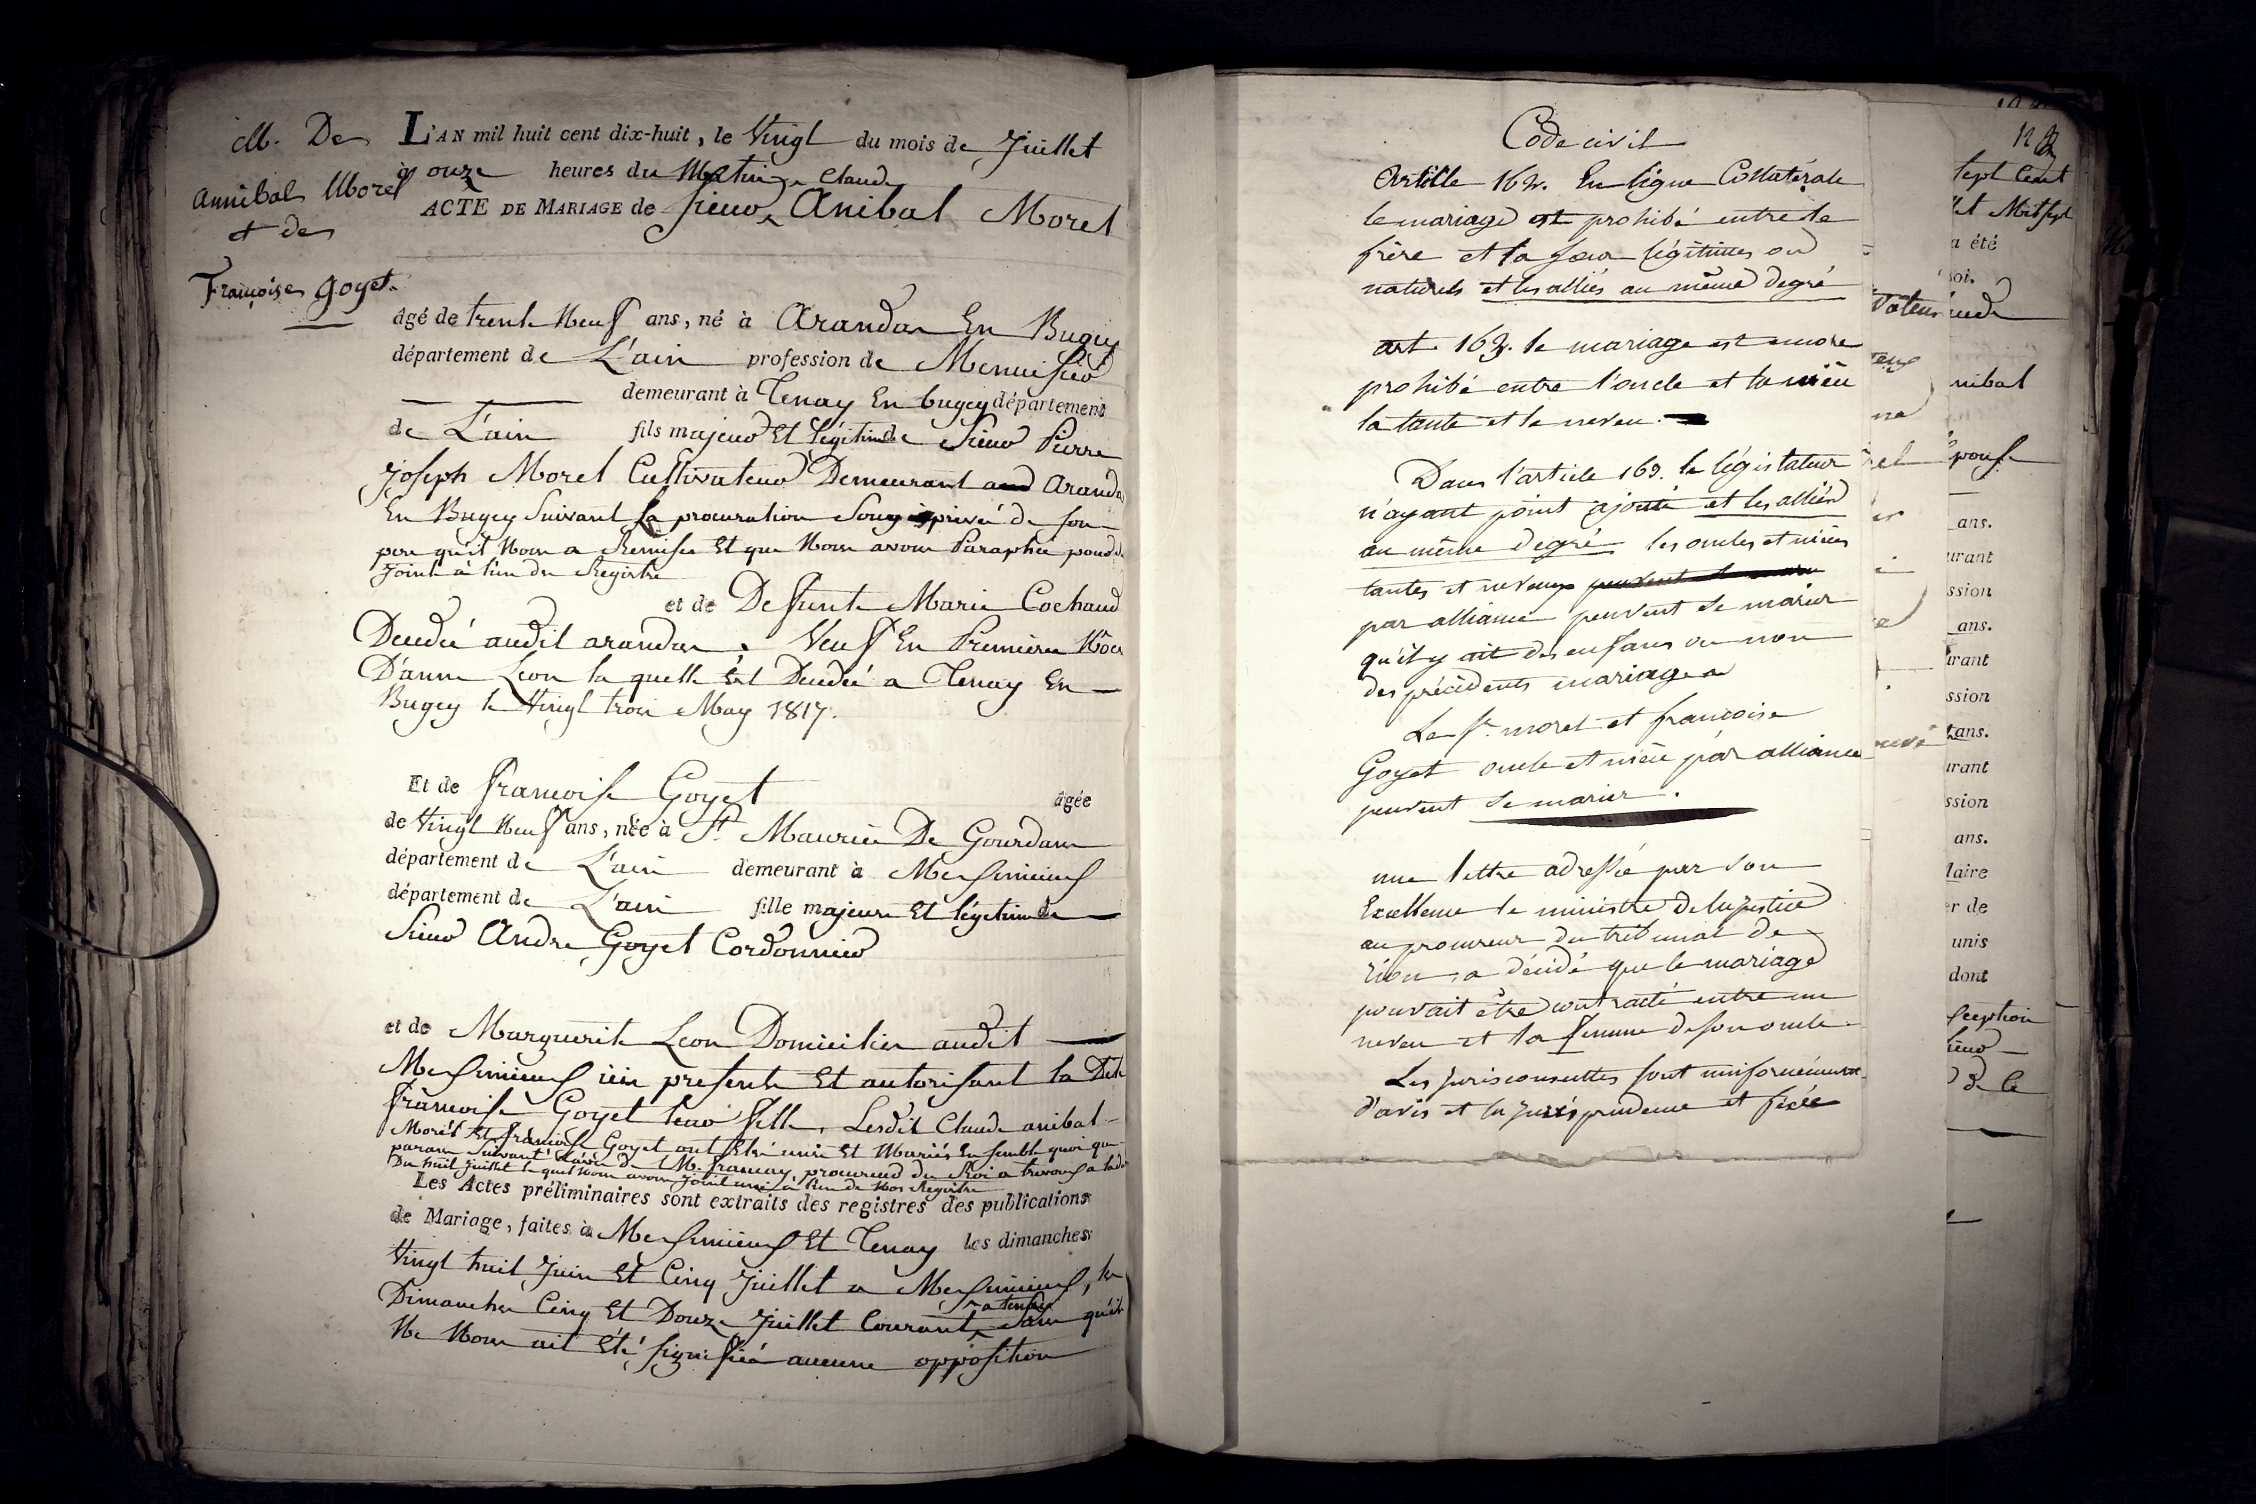 M. De
Annibal Morel
et de
Françoise Goyet.
L'AN mil huit cent dix-huit, le Vingt du mois de Juillet
à onze heures du Matin
Claude
ACTE DE MARIAGE de Sieur Anibal Morel
âgé de trente Neuf ans, né à Arandas En Bugey
département de L'ain profession de Menuisier
demeurant à Tenay En bugey département
de L'ain fils majeur Et légitime de Sieur Pierre
Joseph Morel Cultivateur Demeurant aud Arandas
En Bugey Suivant la procuration Sous privé de son
pere qu'il Nous a Remise Et que Nous avons Paraphée pour
Joint à l'un des Registre
et de Defunte Marie Cochaud
Decedée audit arandas. Veuf En Premiere Nôces
D'anne Leon la quelle Est Decedée a Tenay En
Bugey le Vingt trois May 1817.
Et de Francoise Goyet âgée
de Vingt Neuf ans, née à St. Maurice De Gourdans
département de L'ain demeurant à Messimieux
département de L'ain fille majeure Et légitime de
Sieur Andre Goyet Cordonnier
et de Marguerite Leon Domiciliés audit
Messimieux icy presente Et autorisant la Dite
Francoise Goyet leur fille, Lesdit Claude anibal
Morel Et Francoise Goyet ont Eté unis Et Mariés Ensemble quoi que
parans Suivant L'avis de M. francay procureur du Roi a trevoux a la date
Du huit Juillet le quel Nous avons joint aussi à l'un de Nos Registre
Les Actes préliminaires sont extraits des registres des publications
de Mariage, faites à Messimieux Et Tenay les dimanches
Vingt huit Juin Et Cinq Juillet a Messimieux, les
a tenay
Dimanches Cinq Et Douze Juillet Courant, Sans qu'il
Ne Nous ait Eté signifié aucune opposition
Code civil
Article 162. En ligne Collatérale
le mariage est prohibé entre le
frère et la sœur légitimes ou
naturels et les alliés au même degré
art. 163. le mariage est encore
prohibé entre l'oncle et la nièce
la tante et le neveu.
Dans l'article 163. le législateur
n'ayant point ajouté et les alliés
au même degré les oncles et nièces
tantes et neveux peuvent se marier
par alliance peuvent se marier
qu'il y ait des enfans ou non
des précédents mariages
Le Sr. morel et françoise
Goyet oncle et nièce par alliance
peuvent se marier.
une lettre adressée par son
Excellence le ministre de la justice
au procureur du tribunal de
Riom, a décidé que le mariage
pouvait être contracté entre un
neveu et la femme de son oncle.
Les jurisconsultes sont uniformément
d'avis et la jurisprudence est fixée
sept Cent
a été
nibal
épouse
ans.
urant
ssion
ans.
urant
ssion
ans.
urant
ssion
ans.
laire
er de
unis
dont